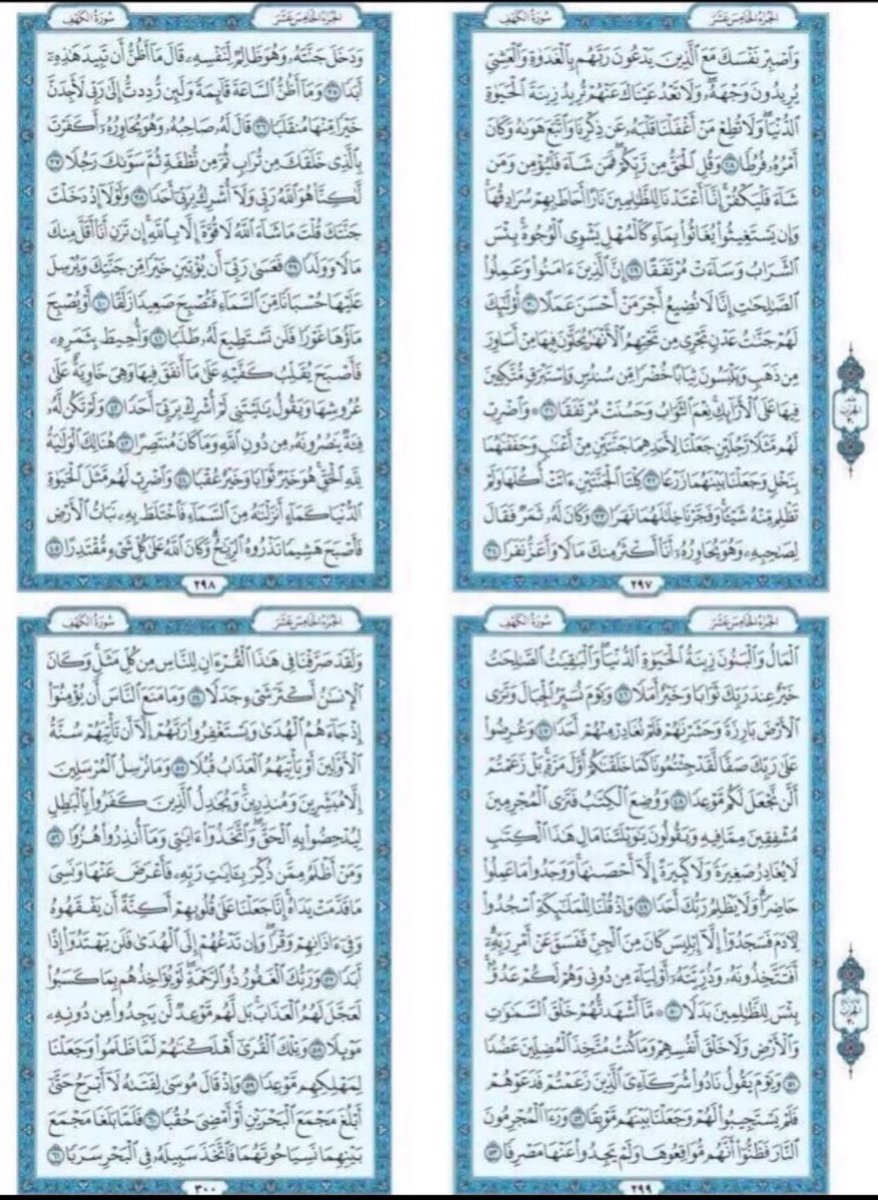 الجُزْءُ الخَامِسَ عَشَرَ
سُورَةُ الكَهْفِ
وَٱصْبِرْ نَفْسَكَ مَعَ ٱلَّذِينَ يَدْعُونَ رَبَّهُم بِٱلْغَدَوٰةِ وَٱلْعَشِيِّ
يُرِيدُونَ وَجْهَهُۥۖ وَلَا تَعْدُ عَيْنَاكَ عَنْهُمْ تُرِيدُ زِينَةَ ٱلْحَيَوٰةِ
ٱلدُّنْيَاۖ وَلَا تُطِعْ مَنْ أَغْفَلْنَا قَلْبَهُۥ عَن ذِكْرِنَا وَٱتَّبَعَ هَوَىٰهُ وَكَانَ
أَمْرُهُۥ فُرُطًا ٢٨ وَقُلِ ٱلْحَقُّ مِن رَّبِّكُمْۖ فَمَن شَآءَ فَلْيُؤْمِن وَمَن
شَآءَ فَلْيَكْفُرْۚ إِنَّآ أَعْتَدْنَا لِلظَّٰلِمِينَ نَارًا أَحَاطَ بِهِمْ سُرَادِقُهَاۚ
وَإِن يَسْتَغِيثُوا۟ يُغَاثُوا۟ بِمَآءٍ كَٱلْمُهْلِ يَشْوِى ٱلْوُجُوهَۚ بِئْسَ
ٱلشَّرَابُ وَسَآءَتْ مُرْتَفَقًا ٢٩ إِنَّ ٱلَّذِينَ ءَامَنُوا۟ وَعَمِلُوا۟
ٱلصَّٰلِحَٰتِ إِنَّا لَا نُضِيعُ أَجْرَ مَنْ أَحْسَنَ عَمَلًا ٣٠ أُو۟لَٰٓئِكَ
لَهُمْ جَنَّٰتُ عَدْنٍ تَجْرِى مِن تَحْتِهِمُ ٱلْأَنْهَٰرُ يُحَلَّوْنَ فِيهَا مِنْ أَسَاوِرَ
مِن ذَهَبٍ وَيَلْبَسُونَ ثِيَابًا خُضْرًا مِّن سُندُسٍ وَإِسْتَبْرَقٍ مُّتَّكِـِٔينَ
فِيهَا عَلَى ٱلْأَرَآئِكِۚ نِعْمَ ٱلثَّوَابُ وَحَسُنَتْ مُرْتَفَقًا ٣١ ۞ وَٱضْرِبْ
لَهُم مَّثَلًا رَّجُلَيْنِ جَعَلْنَا لِأَحَدِهِمَا جَنَّتَيْنِ مِنْ أَعْنَٰبٍ وَحَفَفْنَٰهُمَا
بِنَخْلٍ وَجَعَلْنَا بَيْنَهُمَا زَرْعًا ٣٢ كِلْتَا ٱلْجَنَّتَيْنِ ءَاتَتْ أُكُلَهَا وَلَمْ
تَظْلِم مِّنْهُ شَيْـًٔاۚ وَفَجَّرْنَا خِلَٰلَهُمَا نَهَرًا ٣٣ وَكَانَ لَهُۥ ثَمَرٌ فَقَالَ
لِصَٰحِبِهِۦ وَهُوَ يُحَاوِرُهُۥٓ أَنَا۠ أَكْثَرُ مِنكَ مَالًا وَأَعَزُّ نَفَرًا ٣٤
٢٩٧
الجُزْءُ الخَامِسَ عَشَرَ
سُورَةُ الكَهْفِ
وَدَخَلَ جَنَّتَهُۥ وَهُوَ ظَالِمٌ لِّنَفْسِهِۦ قَالَ مَآ أَظُنُّ أَن تَبِيدَ هَٰذِهِۦٓ
أَبَدًا ٣٥ وَمَآ أَظُنُّ ٱلسَّاعَةَ قَآئِمَةً وَلَئِن رُّدِدتُّ إِلَىٰ رَبِّى لَأَجِدَنَّ
خَيْرًا مِّنْهَا مُنقَلَبًا ٣٦ قَالَ لَهُۥ صَاحِبُهُۥ وَهُوَ يُحَاوِرُهُۥٓ أَكَفَرْتَ
بِٱلَّذِى خَلَقَكَ مِن تُرَابٍ ثُمَّ مِن نُّطْفَةٍ ثُمَّ سَوَّىٰكَ رَجُلًا ٣٧
لَّٰكِنَّا۠ هُوَ ٱللَّهُ رَبِّى وَلَآ أُشْرِكُ بِرَبِّىٓ أَحَدًا ٣٨ وَلَوْلَآ إِذْ دَخَلْتَ
جَنَّتَكَ قُلْتَ مَا شَآءَ ٱللَّهُ لَا قُوَّةَ إِلَّا بِٱللَّهِۚ إِن تَرَنِ أَنَا۠ أَقَلَّ مِنكَ
مَالًا وَوَلَدًا ٣٩ فَعَسَىٰ رَبِّىٓ أَن يُؤْتِيَنِ خَيْرًا مِّن جَنَّتِكَ وَيُرْسِلَ
عَلَيْهَا حُسْبَانًا مِّنَ ٱلسَّمَآءِ فَتُصْبِحَ صَعِيدًا زَلَقًا ٤٠ أَوْ يُصْبِحَ
مَآؤُهَا غَوْرًا فَلَن تَسْتَطِيعَ لَهُۥ طَلَبًا ٤١ وَأُحِيطَ بِثَمَرِهِۦ
فَأَصْبَحَ يُقَلِّبُ كَفَّيْهِ عَلَىٰ مَآ أَنفَقَ فِيهَا وَهِىَ خَاوِيَةٌ عَلَىٰ
عُرُوشِهَا وَيَقُولُ يَٰلَيْتَنِى لَمْ أُشْرِكْ بِرَبِّىٓ أَحَدًا ٤٢ وَلَمْ تَكُن لَّهُۥ
فِئَةٌ يَنصُرُونَهُۥ مِن دُونِ ٱللَّهِ وَمَا كَانَ مُنتَصِرًا ٤٣ هُنَالِكَ ٱلْوَلَٰيَةُ
لِلَّهِ ٱلْحَقِّۚ هُوَ خَيْرٌ ثَوَابًا وَخَيْرٌ عُقْبًا ٤٤ وَٱضْرِبْ لَهُم مَّثَلَ ٱلْحَيَوٰةِ
ٱلدُّنْيَا كَمَآءٍ أَنزَلْنَٰهُ مِنَ ٱلسَّمَآءِ فَٱخْتَلَطَ بِهِۦ نَبَاتُ ٱلْأَرْضِ
فَأَصْبَحَ هَشِيمًا تَذْرُوهُ ٱلرِّيَٰحُۗ وَكَانَ ٱللَّهُ عَلَىٰ كُلِّ شَىْءٍ مُّقْتَدِرًا ٤٥
٢٩٨
الجُزْءُ الخَامِسَ عَشَرَ
سُورَةُ الكَهْفِ
ٱلْمَالُ وَٱلْبَنُونَ زِينَةُ ٱلْحَيَوٰةِ ٱلدُّنْيَاۖ وَٱلْبَٰقِيَٰتُ ٱلصَّٰلِحَٰتُ
خَيْرٌ عِندَ رَبِّكَ ثَوَابًا وَخَيْرٌ أَمَلًا ٤٦ وَيَوْمَ نُسَيِّرُ ٱلْجِبَالَ وَتَرَى
ٱلْأَرْضَ بَارِزَةً وَحَشَرْنَٰهُمْ فَلَمْ نُغَادِرْ مِنْهُمْ أَحَدًا ٤٧ وَعُرِضُوا۟
عَلَىٰ رَبِّكَ صَفًّا لَّقَدْ جِئْتُمُونَا كَمَا خَلَقْنَٰكُمْ أَوَّلَ مَرَّةٍۭۚ بَلْ زَعَمْتُمْ
أَلَّن نَّجْعَلَ لَكُم مَّوْعِدًا ٤٨ وَوُضِعَ ٱلْكِتَٰبُ فَتَرَى ٱلْمُجْرِمِينَ
مُشْفِقِينَ مِمَّا فِيهِ وَيَقُولُونَ يَٰوَيْلَتَنَا مَالِ هَٰذَا ٱلْكِتَٰبِ
لَا يُغَادِرُ صَغِيرَةً وَلَا كَبِيرَةً إِلَّآ أَحْصَىٰهَاۚ وَوَجَدُوا۟ مَا عَمِلُوا۟
حَاضِرًاۗ وَلَا يَظْلِمُ رَبُّكَ أَحَدًا ٤٩ وَإِذْ قُلْنَا لِلْمَلَٰٓئِكَةِ ٱسْجُدُوا۟
لِـَٔادَمَ فَسَجَدُوٓا۟ إِلَّآ إِبْلِيسَ كَانَ مِنَ ٱلْجِنِّ فَفَسَقَ عَنْ أَمْرِ رَبِّهِۦٓۗ
أَفَتَتَّخِذُونَهُۥ وَذُرِّيَّتَهُۥٓ أَوْلِيَآءَ مِن دُونِى وَهُمْ لَكُمْ عَدُوٌّۢۚ
بِئْسَ لِلظَّٰلِمِينَ بَدَلًا ٥٠ ۞ مَّآ أَشْهَدتُّهُمْ خَلْقَ ٱلسَّمَٰوَٰتِ
وَٱلْأَرْضِ وَلَا خَلْقَ أَنفُسِهِمْ وَمَا كُنتُ مُتَّخِذَ ٱلْمُضِلِّينَ عَضُدًا
٥١ وَيَوْمَ يَقُولُ نَادُوا۟ شُرَكَآءِىَ ٱلَّذِينَ زَعَمْتُمْ فَدَعَوْهُمْ
فَلَمْ يَسْتَجِيبُوا۟ لَهُمْ وَجَعَلْنَا بَيْنَهُم مَّوْبِقًا ٥٢ وَرَءَا ٱلْمُجْرِمُونَ
ٱلنَّارَ فَظَنُّوٓا۟ أَنَّهُم مُّوَاقِعُوهَا وَلَمْ يَجِدُوا۟ عَنْهَا مَصْرِفًا ٥٣
٢٩٩
الجُزْءُ الخَامِسَ عَشَرَ
سُورَةُ الكَهْفِ
وَلَقَدْ صَرَّفْنَا فِى هَٰذَا ٱلْقُرْءَانِ لِلنَّاسِ مِن كُلِّ مَثَلٍۚ وَكَانَ
ٱلْإِنسَٰنُ أَكْثَرَ شَىْءٍ جَدَلًا ٥٤ وَمَا مَنَعَ ٱلنَّاسَ أَن يُؤْمِنُوٓا۟
إِذْ جَآءَهُمُ ٱلْهُدَىٰ وَيَسْتَغْفِرُوا۟ رَبَّهُمْ إِلَّآ أَن تَأْتِيَهُمْ سُنَّةُ
ٱلْأَوَّلِينَ أَوْ يَأْتِيَهُمُ ٱلْعَذَابُ قُبُلًا ٥٥ وَمَا نُرْسِلُ ٱلْمُرْسَلِينَ
إِلَّا مُبَشِّرِينَ وَمُنذِرِينَۚ وَيُجَٰدِلُ ٱلَّذِينَ كَفَرُوا۟ بِٱلْبَٰطِلِ
لِيُدْحِضُوا۟ بِهِ ٱلْحَقَّۖ وَٱتَّخَذُوٓا۟ ءَايَٰتِى وَمَآ أُنذِرُوا۟ هُزُوًا ٥٦
وَمَنْ أَظْلَمُ مِمَّن ذُكِّرَ بِـَٔايَٰتِ رَبِّهِۦ فَأَعْرَضَ عَنْهَا وَنَسِىَ
مَا قَدَّمَتْ يَدَاهُۚ إِنَّا جَعَلْنَا عَلَىٰ قُلُوبِهِمْ أَكِنَّةً أَن يَفْقَهُوهُ
وَفِىٓ ءَاذَانِهِمْ وَقْرًاۖ وَإِن تَدْعُهُمْ إِلَى ٱلْهُدَىٰ فَلَن يَهْتَدُوٓا۟ إِذًا
أَبَدًا ٥٧ وَرَبُّكَ ٱلْغَفُورُ ذُو ٱلرَّحْمَةِۖ لَوْ يُؤَاخِذُهُم بِمَا كَسَبُوا۟
لَعَجَّلَ لَهُمُ ٱلْعَذَابَۚ بَل لَّهُم مَّوْعِدٌ لَّن يَجِدُوا۟ مِن دُونِهِۦ
مَوْئِلًا ٥٨ وَتِلْكَ ٱلْقُرَىٰٓ أَهْلَكْنَٰهُمْ لَمَّا ظَلَمُوا۟ وَجَعَلْنَا
لِمَهْلِكِهِم مَّوْعِدًا ٥٩ وَإِذْ قَالَ مُوسَىٰ لِفَتَىٰهُ لَآ أَبْرَحُ حَتَّىٰٓ
أَبْلُغَ مَجْمَعَ ٱلْبَحْرَيْنِ أَوْ أَمْضِىَ حُقُبًا ٦٠ فَلَمَّا بَلَغَا مَجْمَعَ
بَيْنِهِمَا نَسِيَا حُوتَهُمَا فَٱتَّخَذَ سَبِيلَهُۥ فِى ٱلْبَحْرِ سَرَبًا ٦١
٣٠٠